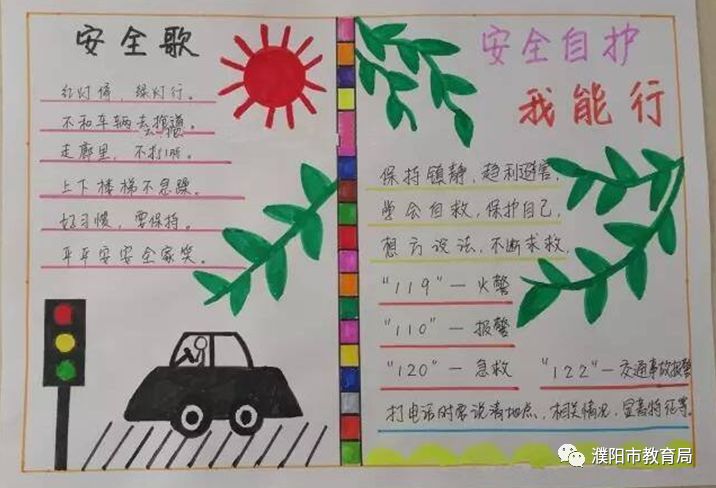 安全歌
红灯停，绿灯行。
不和车辆去抢道。
走廊里，不打闹。
上下楼梯不急躁。
好习惯，要保持。
平平安安全家笑。
安全自护
我能行
保持镇静，趋利避害，
学会自救，保护自己，
想方设法，不断求救，
"119"—火警
"110"—报警
"120"—急救 "122"—交通事故报警
打电话时要说清地点，相关情况，显著特征等。
濮阳市教育局